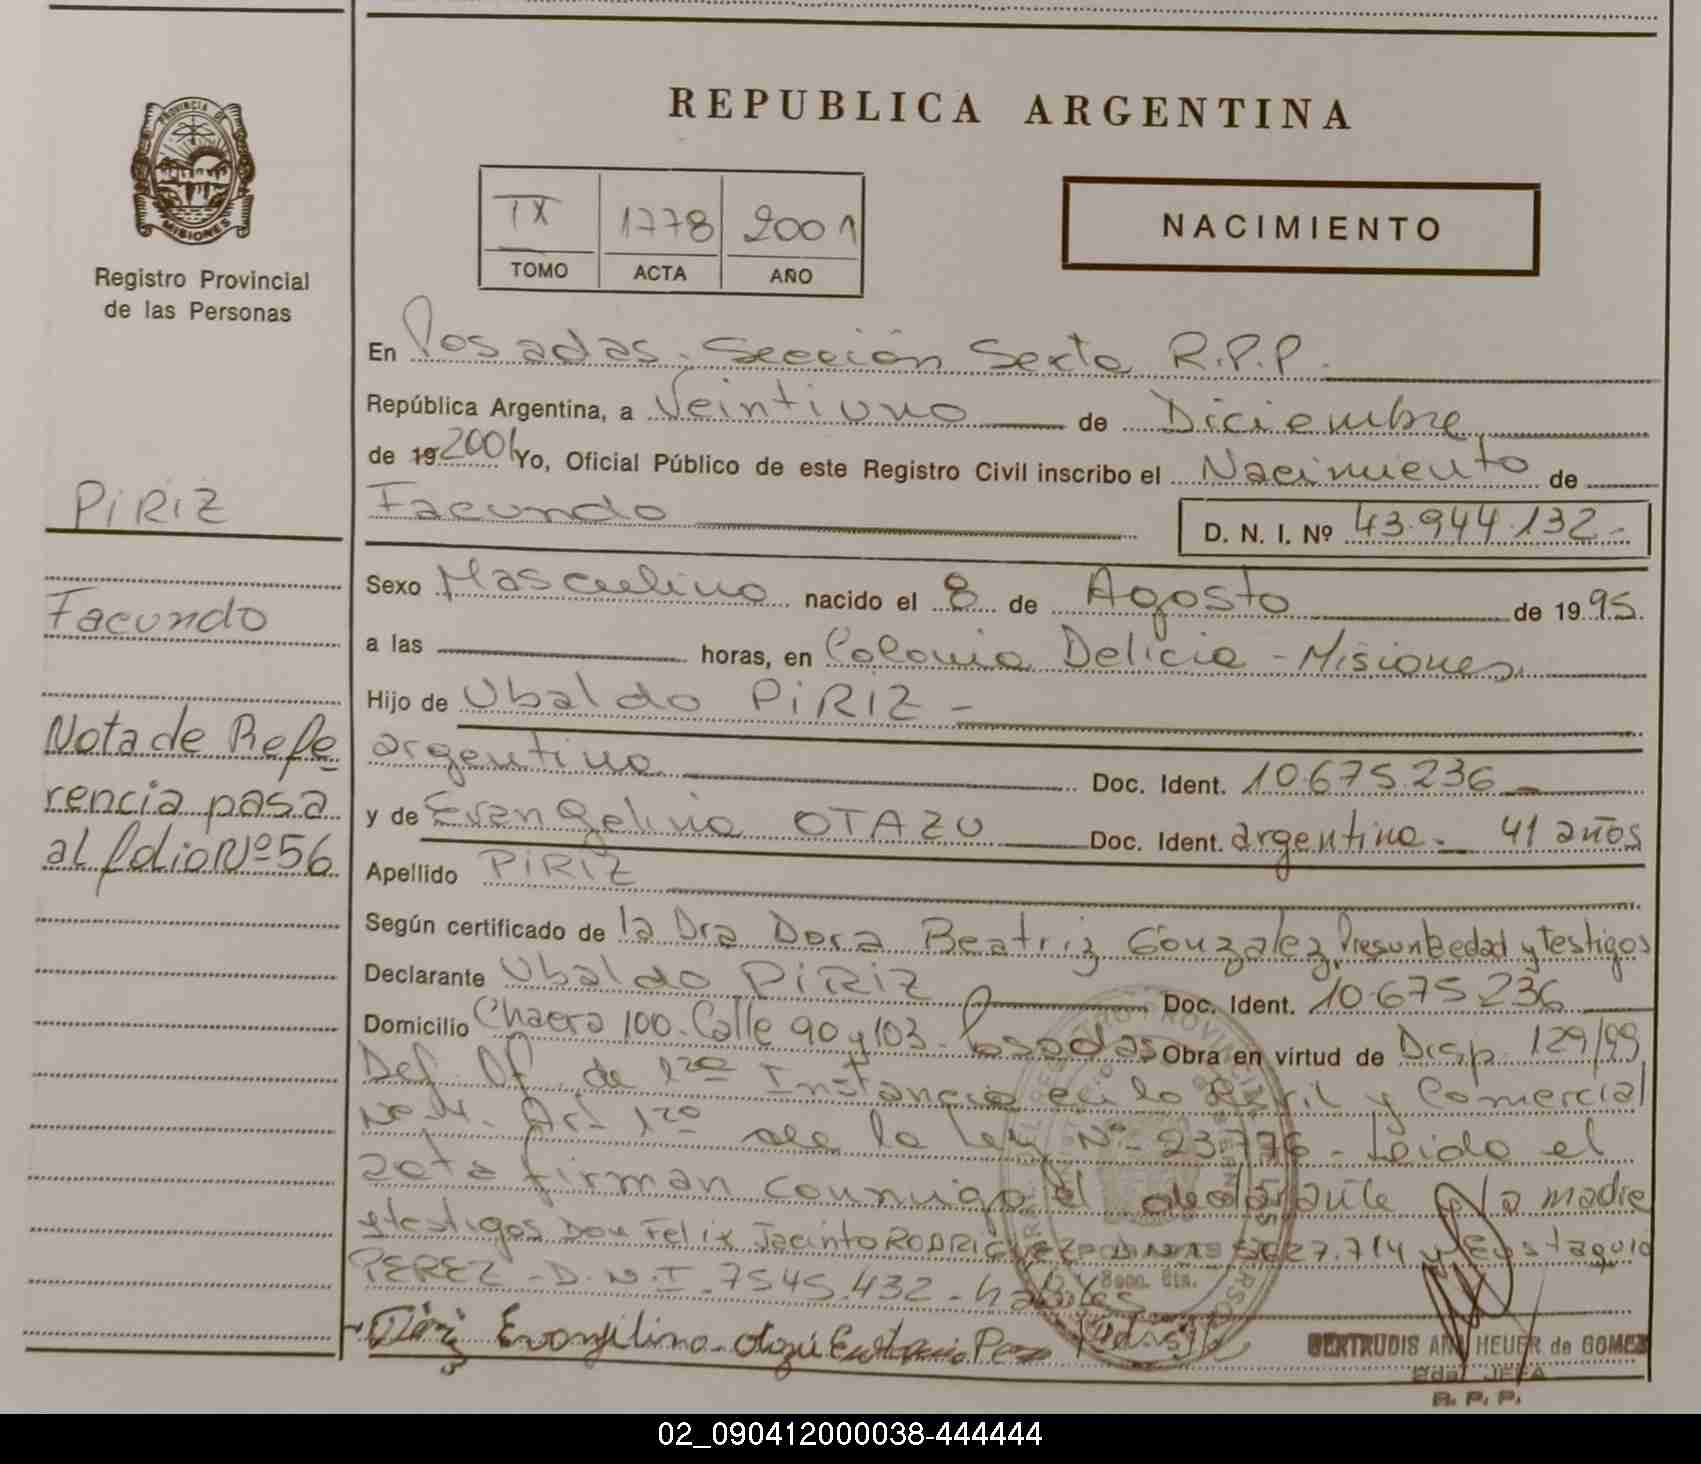 REPUBLICA ARGENTINA
PROVINCIA DE
MISIONES
Registro Provincial
de las Personas
TX 1778 2001
TOMO ACTA AÑO
NACIMIENTO
En Posadas. Sección Sexta R.P.P.
República Argentina, a Veintiuno de Diciembre
de 19 2001 Yo, Oficial Público de este Registro Civil inscribo el Nacimiento de
PiRiZ
Facundo D. N. I. Nº 43.944.132-
Sexo Masculino nacido el 8 de Agosto de 19 95.
Facundo
a las horas, en Colonia Delicia - Misiones.
Hijo de Ubaldo PiRIZ -
Nota de Refe
rencia pasa
al folio Nº 56
argentino Doc. Ident. 10.675.236
y de Evangelina OTAZU Doc. Ident. argentina. 41 años
Apellido PiRIZ
Según certificado de la Dra Dora Beatriz Gonzalez, Presunta edad y testigos
Declarante Ubaldo PiRiZ Doc. Ident. 10.675.236
Domicilio Chacra 100. Calle 90 y 103. Posadas Obra en virtud de Disp. 129/99
Def. Of. de 1ra Instancia en lo Civil y Comercial
Art 1ro de la Ley Nº 23.776 - Leido el
acta firman conmigo el declarante la madre
y testigos Don Felix Jacinto RODRIGUEZ 27.714 y Eustaquio
PEREZ - D.N.I. 7545.432 - habiles
Piriz Evangelina. Otazú
GERTRUDIS HEUER de GOMEZ
2da. JEFA
R. P. P.
02_090412000038-444444